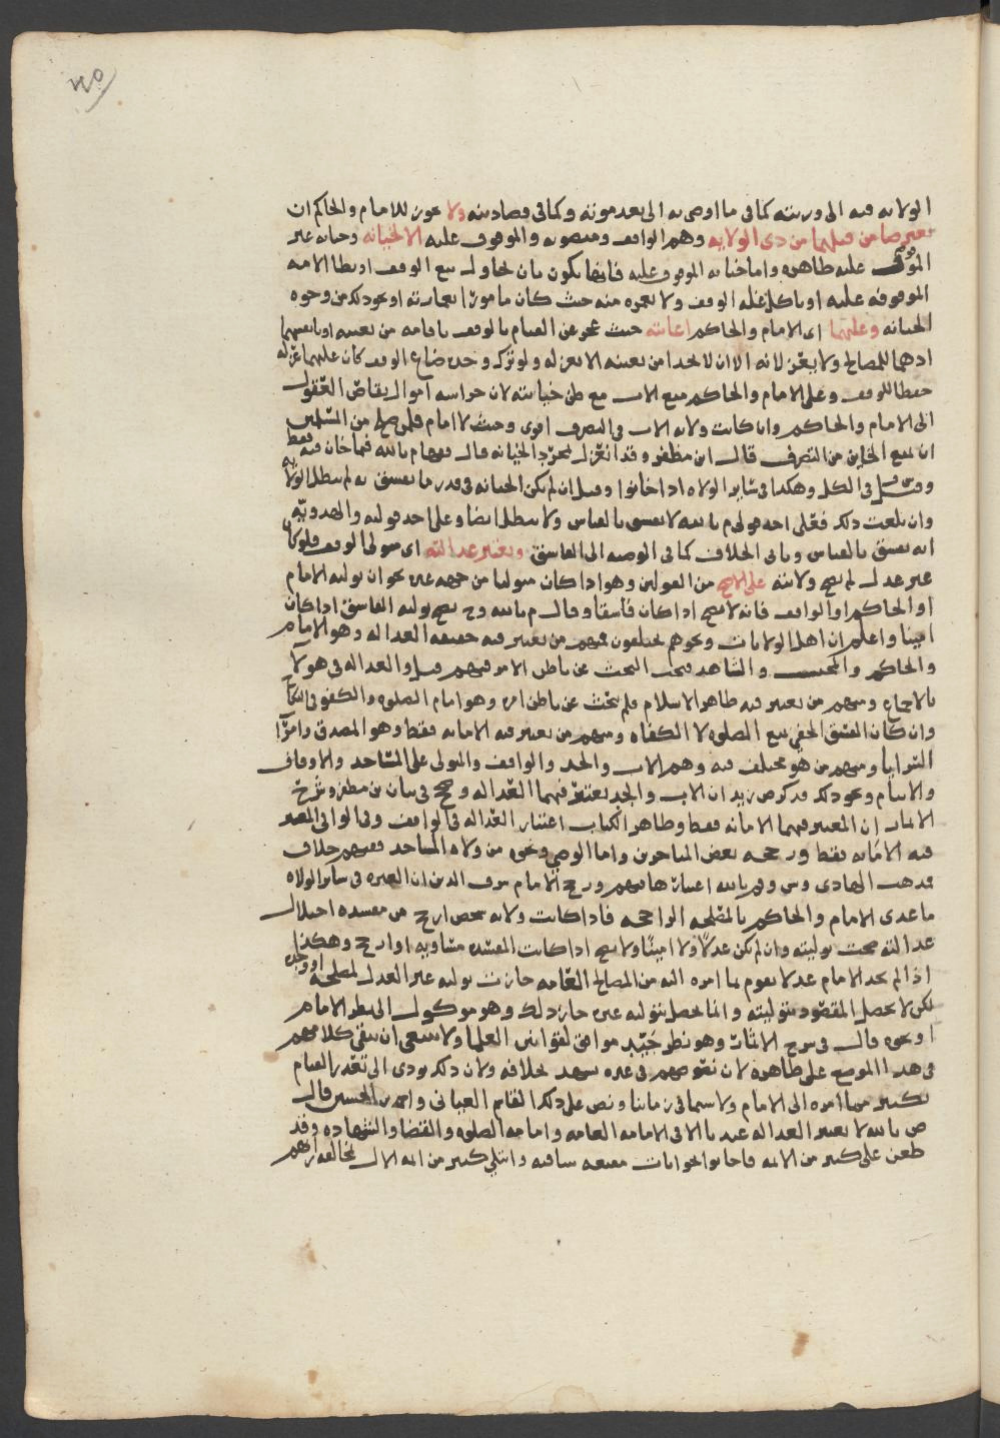 الولايه فيه الى ورثته كما في ما اوصى به الى بعد موته وكما في مصادينه ولا يجوز للامام والحاكم ان
يعترضا من قبلهما من ذي الولايه وهم الواقف ومنصوبه والموقوف عليه الا لخيانه وخيانه غير
الموقوف عليه ظاهره واما خيانه الموقوف عليه فانها تكون بان يحاول بيع الوقف او يطا الامه
الموقوفه عليه او ياكل غله الوقف ولا يعمره منه حيث كان مامورا بعمارته او نحو ذلك من وجوه
الخيانه وعليهما اى الامام والحاكم اعانته حيث عجز عن القيام بالوقف باقامه من يعينه او بانفسهما
ادهما للمصالح ولا يعزلانه الا ان لا يجدا من يعينه الا بعزله ولو ترك وحده ضاع الوقف كان عليهما عزله
حفظا للوقف وعلى الامام والحاكم منع الاب مع ظن خيانته لان حراسه اموال ناقص العقول
الى الامام والحاكم وان كانت ولايه الاب في التصرف اقوى وحيث لا امام فلمن صلح من المسلمين
ان يمنع الخاين من التصرف قال ابن مظفر وقد انعزل بمجرد الخيانه قال فيما خان فيه فقط
وقيل في الكل وهكذا في ساير الولاه اذا خانوا وقيل ان لم تكن الخيانه في قدر ما يفسق به لم تبطل الولايه
وان بلغت ذلك فعلى احد قولي م بالله لا يفسق بالقياس ولا تبطل ايضا وعلى احد قوليه والهدويه
انه يفسق بالقياس وياتي الخلاف كما في الوصيه الى الفاسق وتعتبر عدالته اى متولى الوقف فلو كان
غير عدل لم تصح ولايته على الاصح من القولين وهو اذا كان متوليا من جهه غيره نحو ان يوليه الامام
او الحاكم او الواقف فانه لا يصح اذا كان فاسقا وقال م بالله وح يصح توليه الفاسق اذا كان
امينا واعلم ان اهل الولايات ونحوهم يختلفون فمنهم من تعتبر فيه حقيقه العداله وهو الامام
والحاكم والمحتسب والشاهد فيجب البحث عن باطن الامر فيهم قيل والعداله في هولا
بالاجماع ومنهم من يعتبر فيه ظاهر الاسلام فلم يبحث عن باطن امره وهو امام الصلوه والكفو في النكاح
وان كان الفسق الخفي يمنع الصلوه لا الكفاه ومنهم من تعتبر فيه الامانه فقط وهو المصدق وامرا
السرايا ومنهم من هو مختلف فيه وهم الاب والجد والواقف والمتولى على المساجد والاوقاف
والايتام ونحو ذلك فذكر ض زيد ان الاب والجد يعتبر فيهما العداله وصحح في بيان بن مظفر وشرح
الاثمار ان المعتبر فيهما الامانه فقط وظاهر الكتاب اعتبار العداله في الواقف وفي الوافي المعتبر
فيه الامانه فقط ورجحه بعض المتاخرين واما الوصي ونحوه من ولاه المساجد ففيهم خلاف
فذهب الهادي وش وم بالله اعتبارها فيهم ورجح الامام شرف الدين ان العبره في ساير الولاه
ما عدى الامام والحاكم بالمصلحه الراجحه فاذا كانت ولايه شخص ارجح من مفسده اختلال
عدالته صحت توليته وان لم يكن عدلا ولا امينا ولا يصح اذا كانت المفسده مساويه او ارجح وهكذا
اذا لم يجد الامام عدلا يقوم بما امره اليه من المصالح العامه جازت توليه غير العدل لمصلحه او وجد
لكن لا يحصل المقصود بتوليته وانما يحصل بتوليه غيره جاز ذلك وهو موكول الى نظر الامام
او نحوه قال في شرح الاثمار وهو نظر جيد موافق لقوانين العلما ولا ينبغي ان يبقى كلامهم
في هذا الموضع على ظاهره لان نصوصهم في غيره تشهد بخلافه ولان ذلك يودى الى تعذر القيام
بكثير مما امره الى الامام ولا سيما في زماننا ونص على ذلك القاسم العياني واحمد بن الحسين قال
ض بالله لا يعتبر العداله عندنا الا في الامامه العامه وامامه الصلوه والقضا والشهاده وقد
طعن على كثير من الايمه فاجابوا بجوابات مقنعه شافيه وابتلي كثير من ايمه الال بمخالفه اربهم